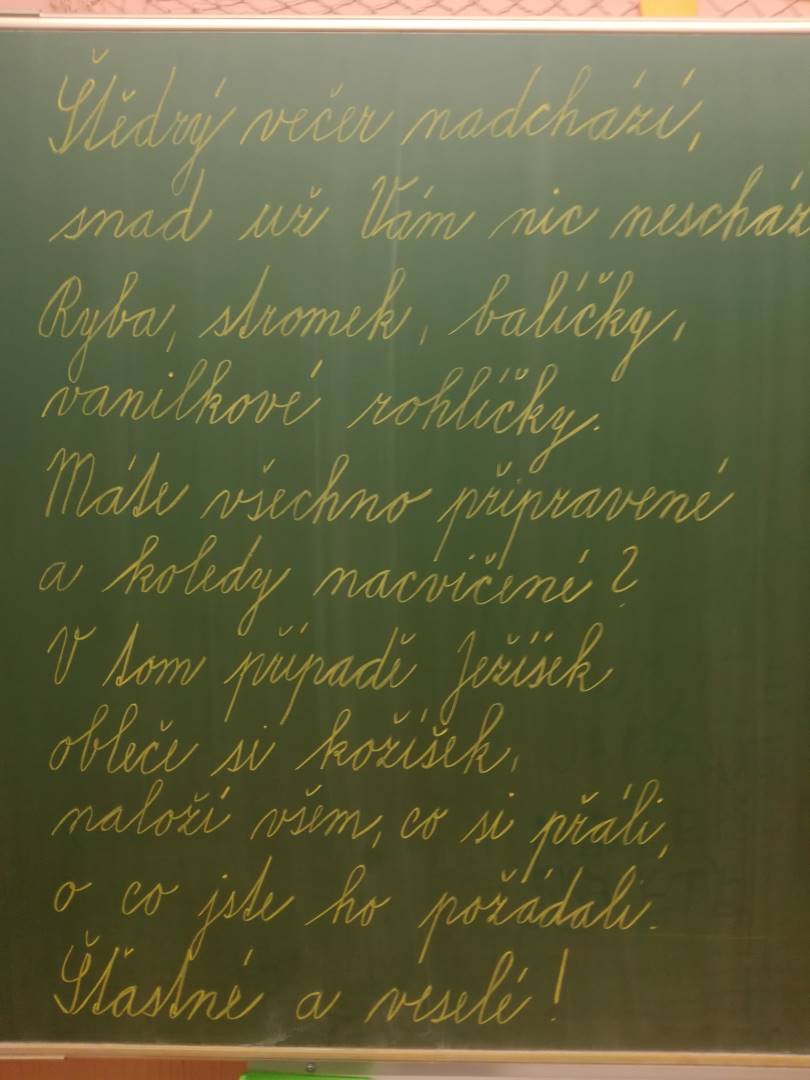 Štědrý večer nadchází,
snad už Vám nic neschází
Ryba, stromek, balíčky,
vanilkové rohlíčky.
Máte všechno připravené
a koledy nacvičené?
V tom případě Ježíšek
obleče si kožíšek,
naloží všem, co si přáli,
o co jste ho požádali.
Šťastné a veselé!